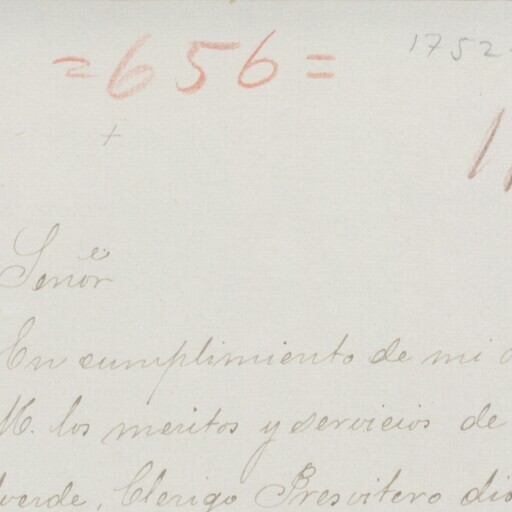 =656= 1752
+
Señor
En cumplimiento de mi
M. los meritos y servicios de
verde, Clerigo Presvitero